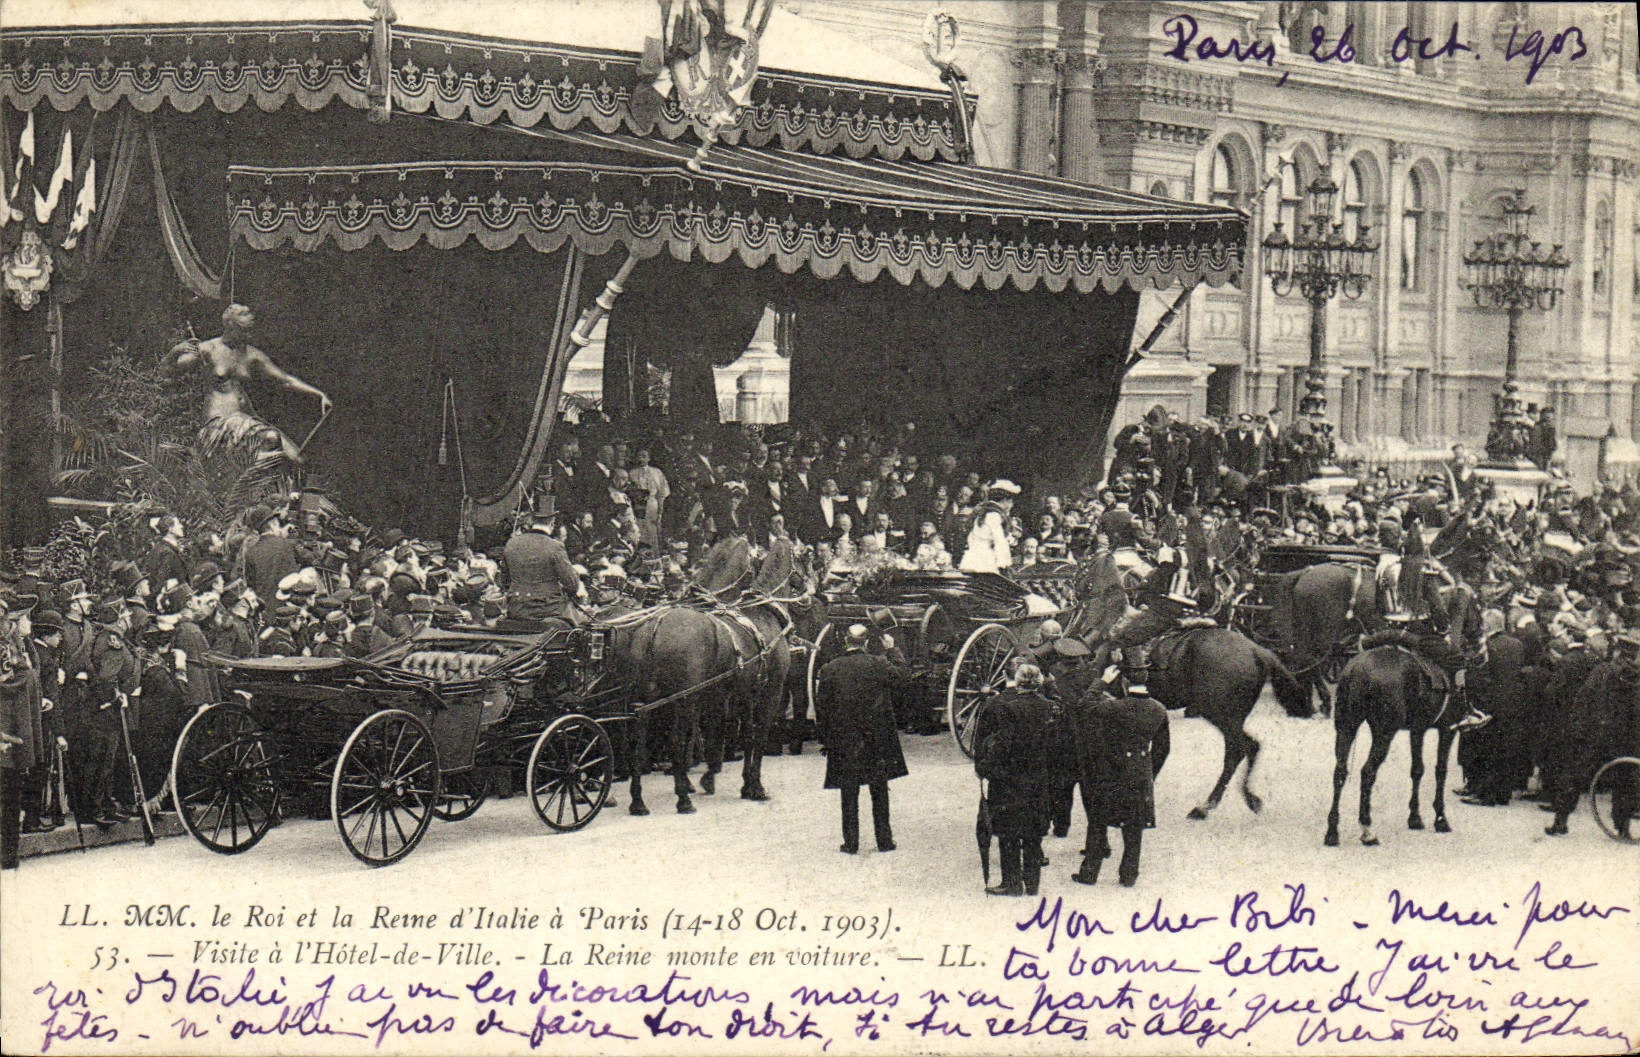 Paris, 26 Oct. 1903
LL. MM. le Roi et la Reine d'Italie à Paris (14-18 Oct. 1903).
53. — Visite à l'Hôtel-de-Ville. - La Reine monte en voiture. — LL.
Mon cher Bibi - Merci pour
ta bonne lettre, J'ai vu le
roi d'Italie, j'ai vu les décorations, mais n'ai participé que de loin aux
fêtes - n'oublie pas de faire ton droit, si tu restes à Alger.